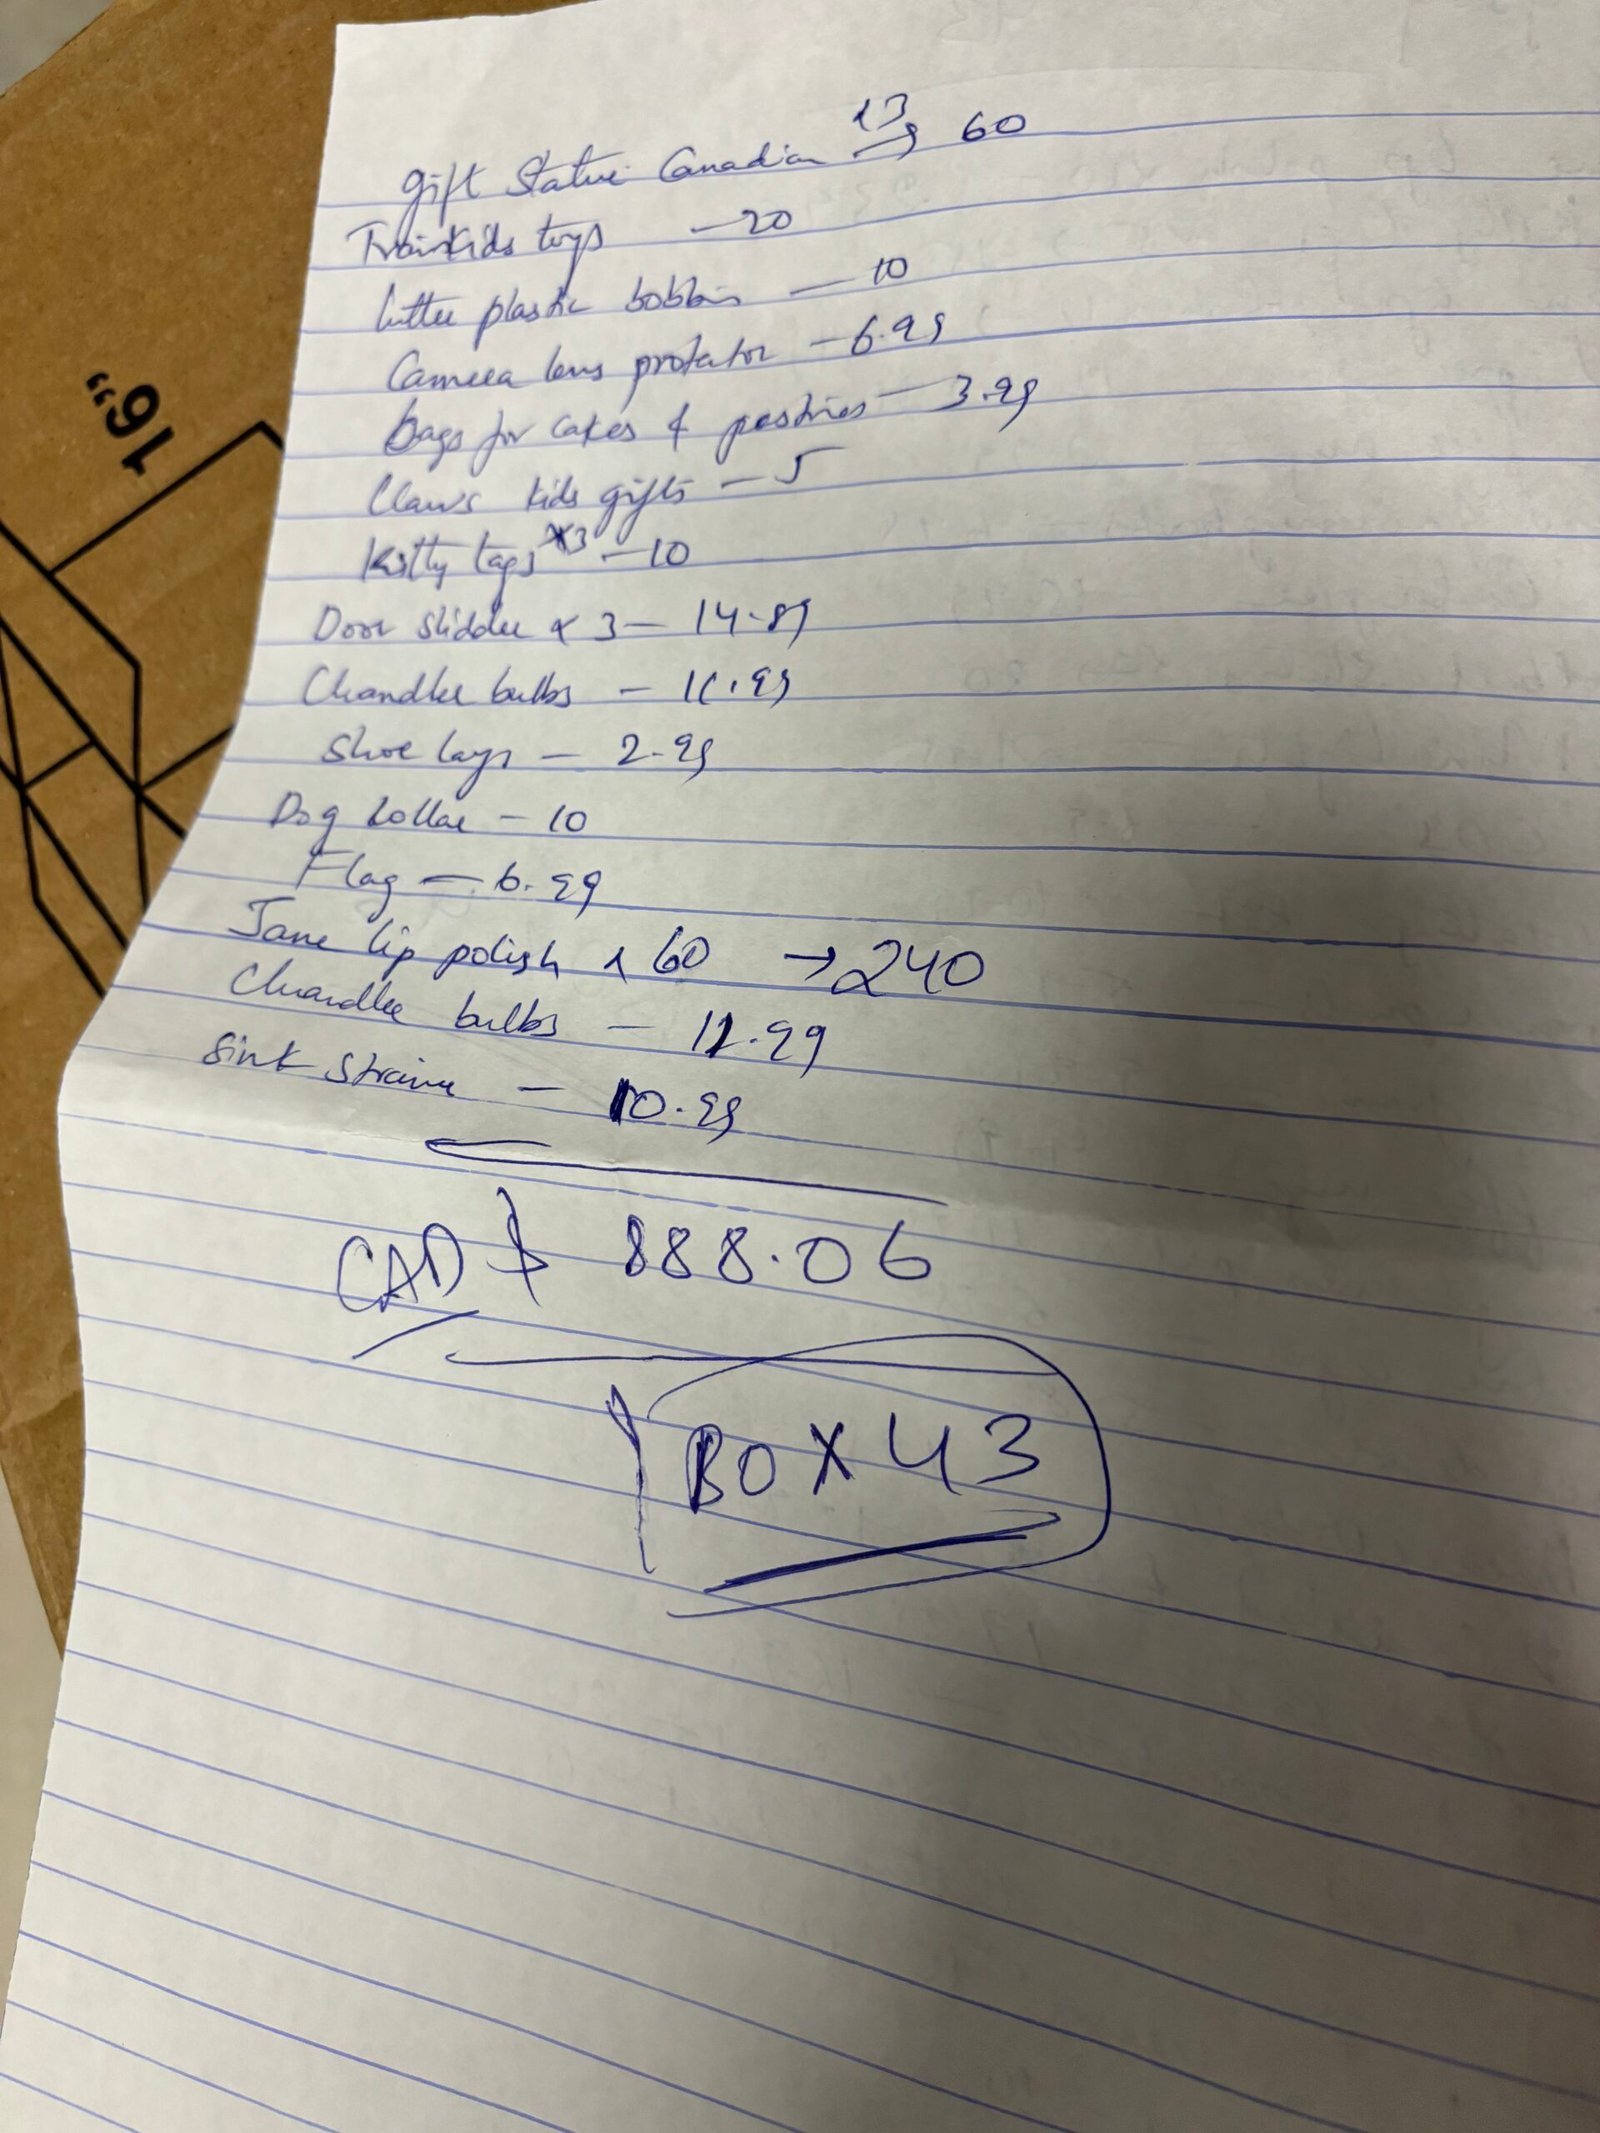 13
gift Statue Canadian → 60
Train kids toys — 20
plastic bobbin — 10
Camera lens protator — 6.99
bags for cakes & pastries — 3.99
Claws kids gifts — 5
Kitty tags x3 — 10
Door slidder x 3 — 14.89
Chandlee bulbs — 11.99
Shoe lays — 2.99
Dog Collae — 10
Flag — 6.99
Jane lip polish x 60 → 240
Chandlee bulbs — 11.99
Sink Straine — 10.99
CAD $ 888.06
BOX 43
16"